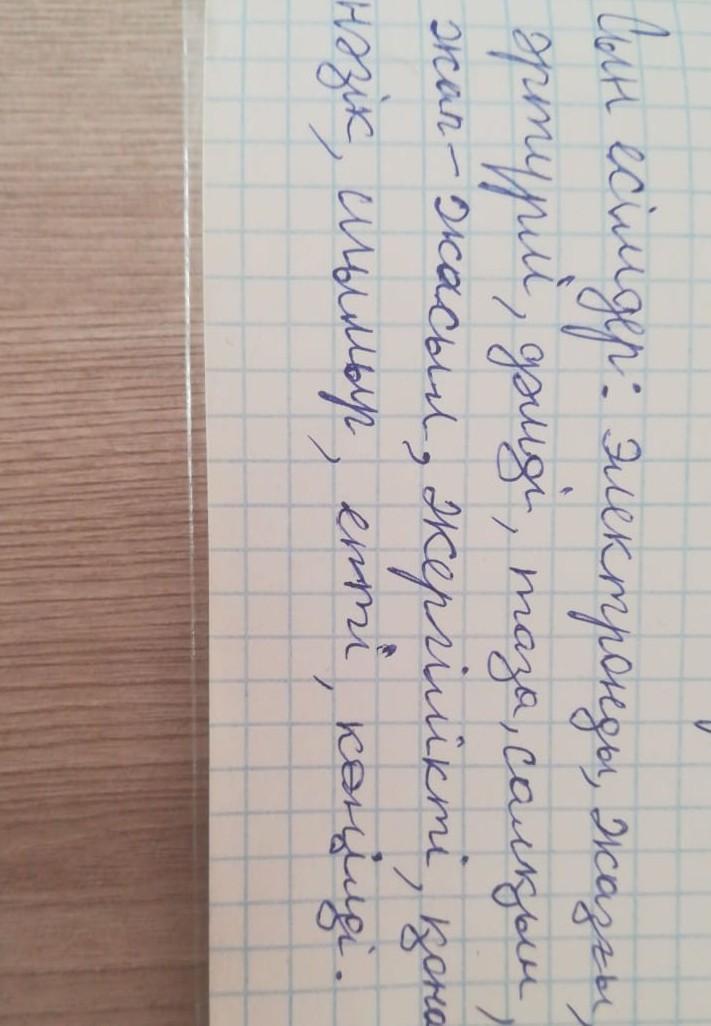 Сын есімдер: Электронды, Жазғы,
әртүрлі, дәмді, таза, салқын,
жап-жасыл, Жергілікті, қона
нәзік, шымыр, епті, көңілді.